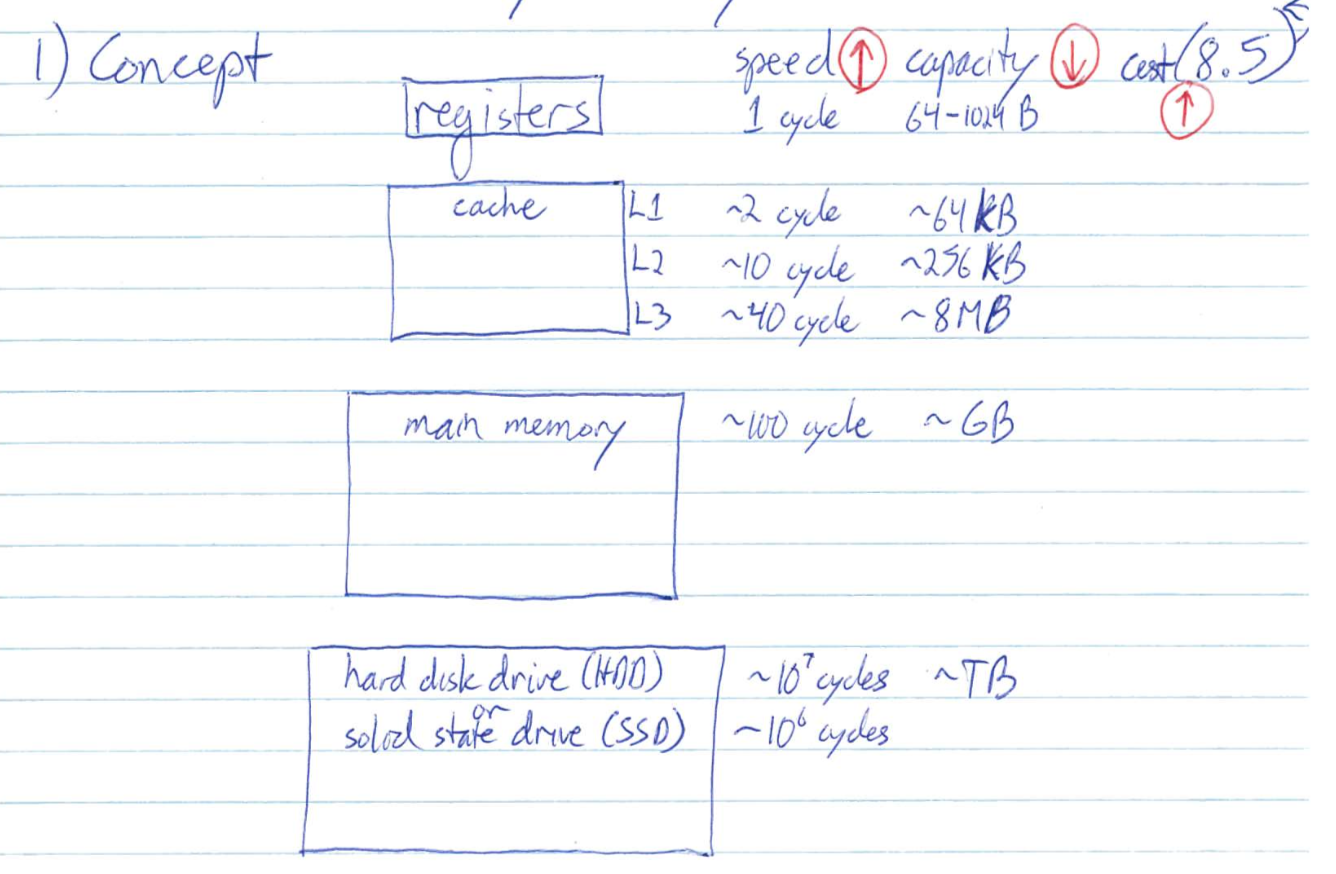 1) Concept speed ↑ capacity ↓ cost (8.5)
↑
registers 1 cycle 64-1024 B
cache L1 ~2 cycle ~64 kB
L2 ~10 cycle ~256 KB
L3 ~40 cycle ~8MB
main memory ~100 cycle ~GB
hard disk drive (HDD) ~10⁷ cycles ~TB
or
solod state drive (SSD) ~10⁶ cycles